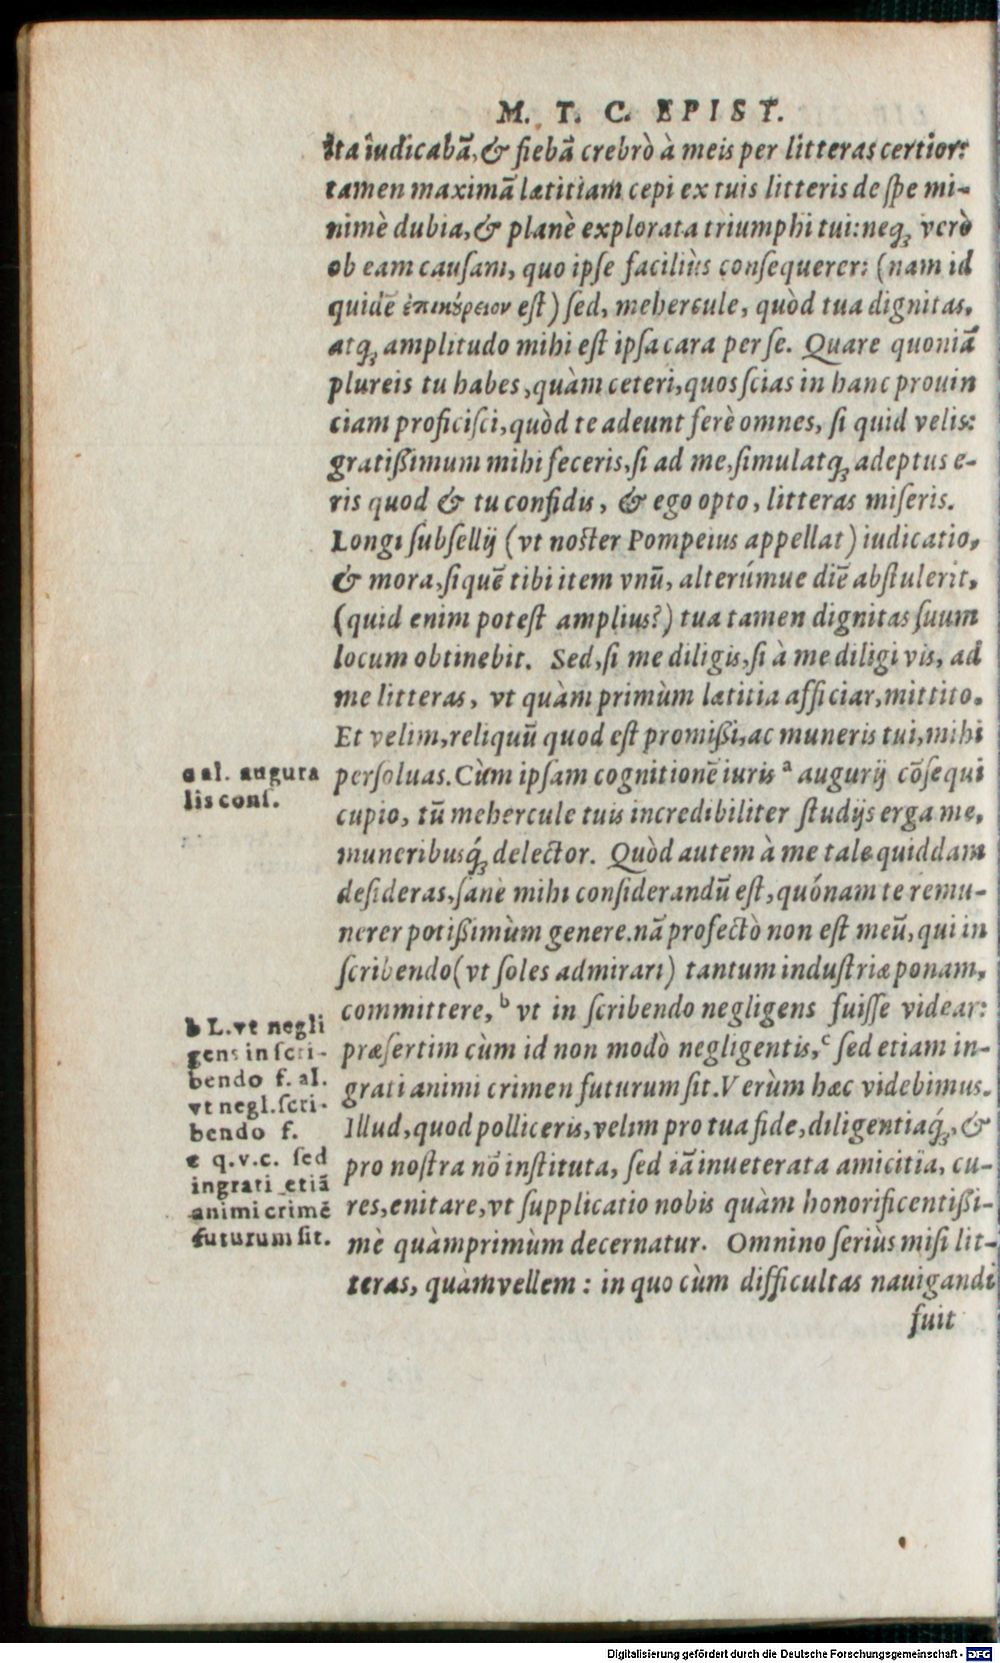 M. T. C. EPIST.
ita iudicabã, & fiebã crebrò à meis per litteras certior:
tamen maximã lætitiam cepi ex tuis litteris de ſpe mi-
nimè dubia, & planè explorata triumphi tui: neq; verò
ob eam cauſam, quo ipſe faciliùs conſequerer: (nam id
quidẽ ἐπικύρειον eſt) ſed, mehercule, quòd tua dignitas,
atq; amplitudo mihi eſt ipſa cara per ſe. Quare quoniã
plureis tu habes, quàm ceteri, quos ſcias in hanc prouin
ciam proficiſci, quòd te adeunt ferè omnes, ſi quid velis:
gratißimum mihi feceris, ſi ad me, ſimulatq; adeptus e-
ris quod & tu confidis, & ego opto, litteras miſeris.
Longi ſubſellij (vt noſter Pompeius appellat) iudicatio,
& mora, ſi quẽ tibi item vnũ, alterúmue diẽ abſtulerit,
(quid enim poteſt amplius?) tua tamen dignitas ſuum
locum obtinebit. Sed, ſi me diligis, ſi à me diligi vis, ad
me litteras, vt quàm primùm lætitia afficiar, mittito.
Et velim, reliquũ quod eſt promißi, ac muneris tui, mihi
a al. augura
lis conſ.
perſoluas. Cùm ipſam cognitionẽ iuris ᵃ augurij cõſequi
cupio, tũ mehercule tuis incredibiliter ſtudijs erga me,
muneribusq́; delector. Quòd autem à me tale quiddam
deſideras, ſanè mihi conſiderandũ eſt, quónam te remu-
nerer potißimùm genere. nã profectò non eſt meũ, qui in
ſcribendo (vt ſoles admirari) tantum induſtriæ ponam,
committere, ᵇ vt in ſcribendo negligens fuiſſe videar:
præſertim cùm id non modò negligentis, ᶜ ſed etiam in-
grati animi crimen futurum ſit. Verùm hæc videbimus.
Illud, quod polliceris, velim pro tua fide, diligentiaq́;, &
pro noſtra nõ inſtituta, ſed iã inueterata amicitia, cu-
res, enitare, vt ſupplicatio nobis quàm honorificentißi-
mè quàmprimùm decernatur. Omnino ſeriùs miſi lit-
teras, quàm vellem: in quo cùm difficultas nauigandi
b L. vt negli
gens in ſcri-
bendo f. al.
vt negl. ſcri-
bendo f.
c q.v.c. ſed
ingrati etiã
animi crimẽ
futurum ſit.
fuit
Digitalisierung gefördert durch die Deutsche Forschungsgemeinschaft - DFG